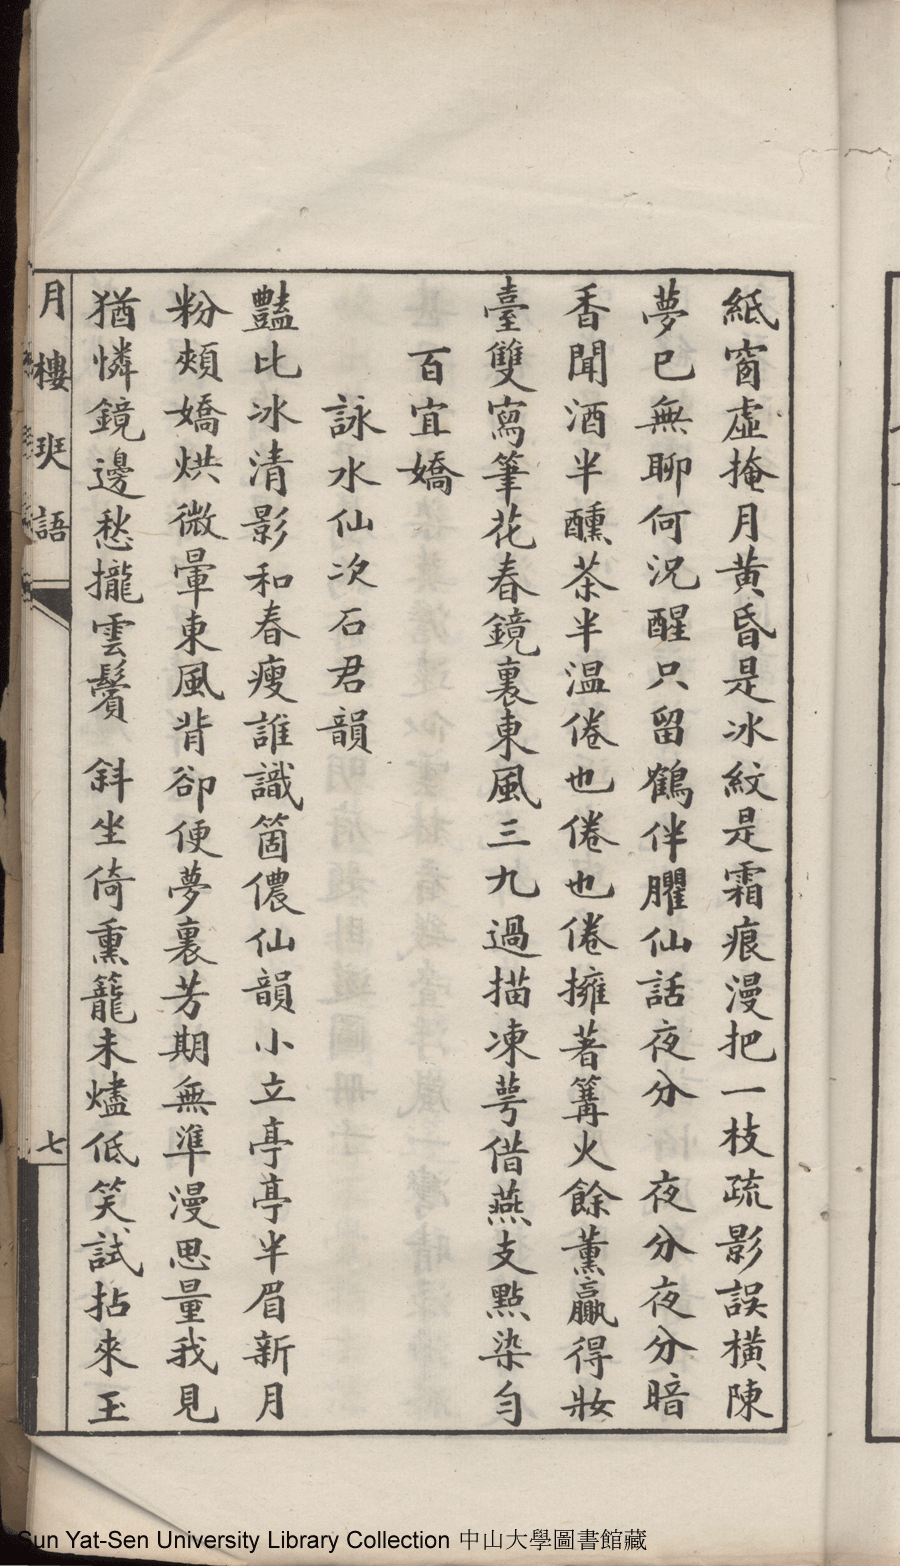 紙窗虛掩月黃昏是冰紋是霜痕漫把一枝疏影誤橫陳
夢已無聊何況醒只留鶴伴臞仙話夜分　夜分夜分暗
香聞酒半醺茶半温倦也倦也倦擁著篝火餘薰贏得妝
臺雙寫筆花春鏡裏東風三九過描凍萼借燕支點染勻
百宜嬌
詠水仙次石君韻
豔比冰清影和春瘦誰識箇儂仙韻小立亭亭半眉新月
粉頰嬌烘微暈東風背卻便夢裏芳期無準漫思量我見
猶憐鏡邊愁攏雲鬢　斜坐倚熏籠未燼低笑試拈來玉
月樓琖語
七
Sun Yat-Sen University Library Collection 中山大學圖書館藏